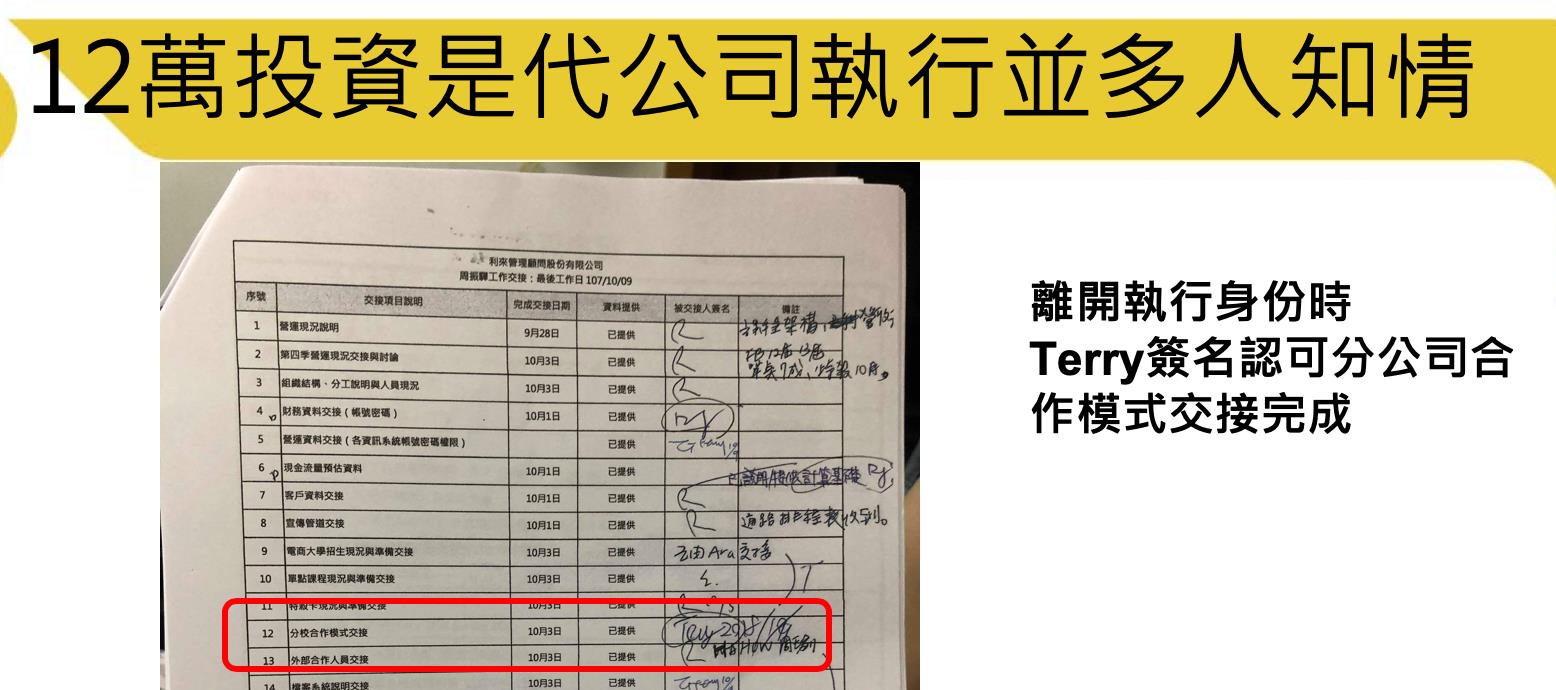 12萬投資是代公司執行並多人知情
利來管理顧問股份有限公司
周振驊工作交接：最後工作日 107/10/09
序號 交接項目說明 完成交接日期 資料提供 被交接人簽名 備註
1 營運現況說明 9月28日 已提供 R
2 第四季營運現況交接與討論 10月3日 已提供 R
3 組織結構、分工說明與人員現況 10月3日 已提供 R
4 財務資料交接（帳號密碼） 10月1日 已提供
5 營運資料交接（各資訊系統帳號密碼權限） 已提供
6 現金流量預估資料 10月1日 已提供 計算基礎
7 客戶資料交接 10月1日 已提供 R
8 宣傳管道交接 10月1日 已提供 R 收到。
9 電商大學招生現況與準備交接 10月3日 已提供 Ara 交接
10 單點課程現況與準備交接 10月3日 已提供
11 特殺卡現況與準備交接 10月3日 已提供
12 分校合作模式交接 10月3日 已提供
13 外部合作人員交接 10月3日 已提供 R
14 檔案系統說明交接 10月3日 已提供
離開執行身份時
Terry簽名認可分公司合
作模式交接完成